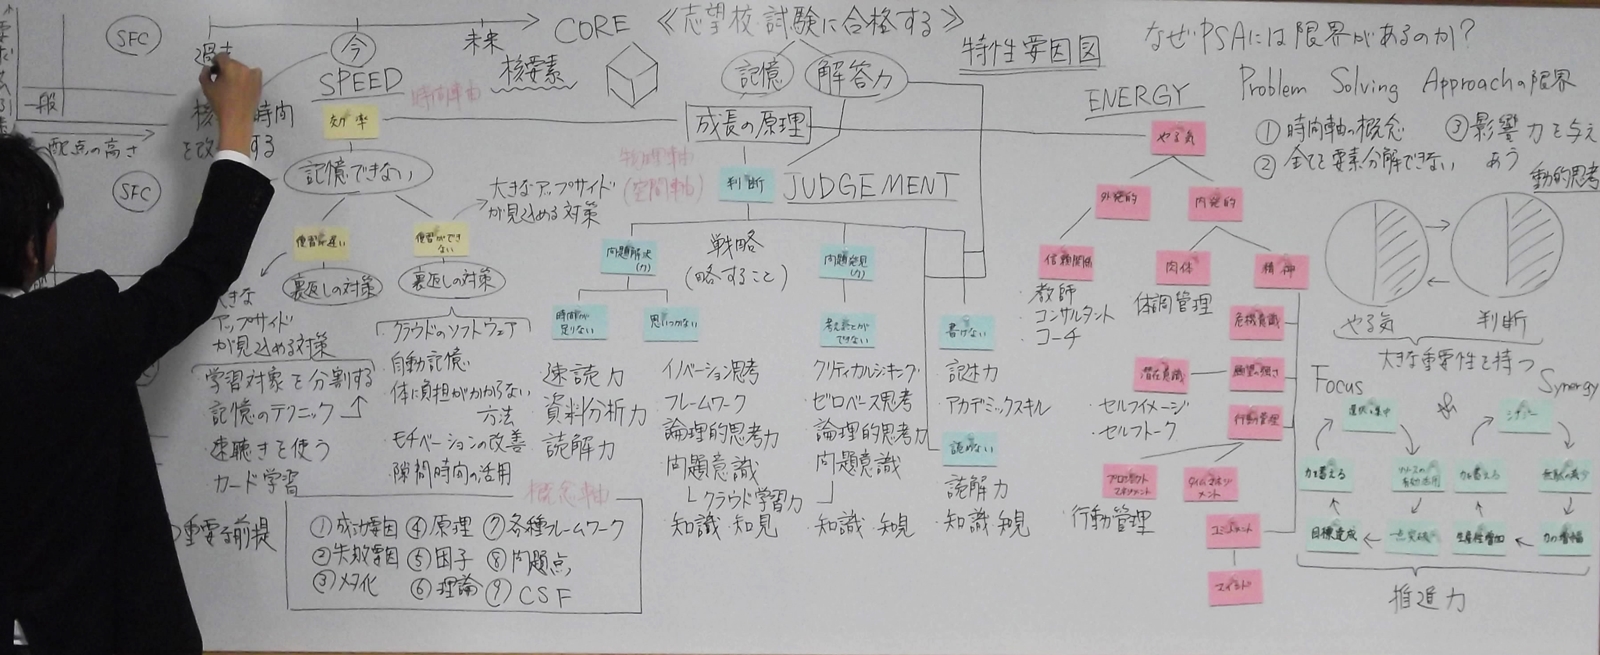 SFC
一般
配点の高さ
SFC
今
未来
CORE
《志望校試験に合格する》
核要素
SPEED
時間軸
記憶
解答力
特性要因図
なぜPSAには限界があるのか?
Problem Solving Approachの限界
① 時間軸の概念
② 全てを要素分解できない
③ 影響力を与え
あう
動的思考
効率
記憶できない
復習が遅い
復習ができ
ない
裏返しの対策
裏返しの対策
大きなアップサイド
が見込める対策
大きな
アップサイド
が見込める対策
学習対象を分割する
記憶のテクニック
速聴きを使う
カード学習
クラウドのソフトウェア
自動記憶
体に負担がかからない
方法
モチベーションの改善
隙間時間の活用
成長の原理
(空間軸)
判断
JUDGEMENT
戦略
(略すること)
問題解決
(力)
問題発見
(力)
時間が
足りない
思いつかない
考えることが
できない
書けない
読めない
速読力
資料分析力
読解力
イノベーション思考
フレームワーク
論理的思考力
問題意識
クラウド学習力
知識・知見
クリティカルシンキング
ゼロベース思考
論理的思考力
問題意識
知識・知見
記述力
アカデミックスキル
読解力
知識・知見
概念軸
重要な前提
① 成功要因 ④ 原理 ⑦ 各種フレームワーク
② 失敗要因 ⑤ 因子 ⑧ 問題点
③ メタ化 ⑥ 理論 ⑨ CSF
ENERGY
やる気
外発的
内発的
信頼関係
肉体
精神
・教師
・コンサルタント
・コーチ
体調管理
危機意識
願望の強さ
潜在意識
行動管理
・セルフイメージ
・セルフトーク
プロジェクト
マネジメント
タイムマネジ
メント
行動管理
コミットメント
マインド
やる気
判断
大きな重要性を持つ
Focus
Synergy
選択と集中
力を蓄える
目標達成
一点突破
シナジー
力を蓄える
生産性増加
力の増幅
推進力